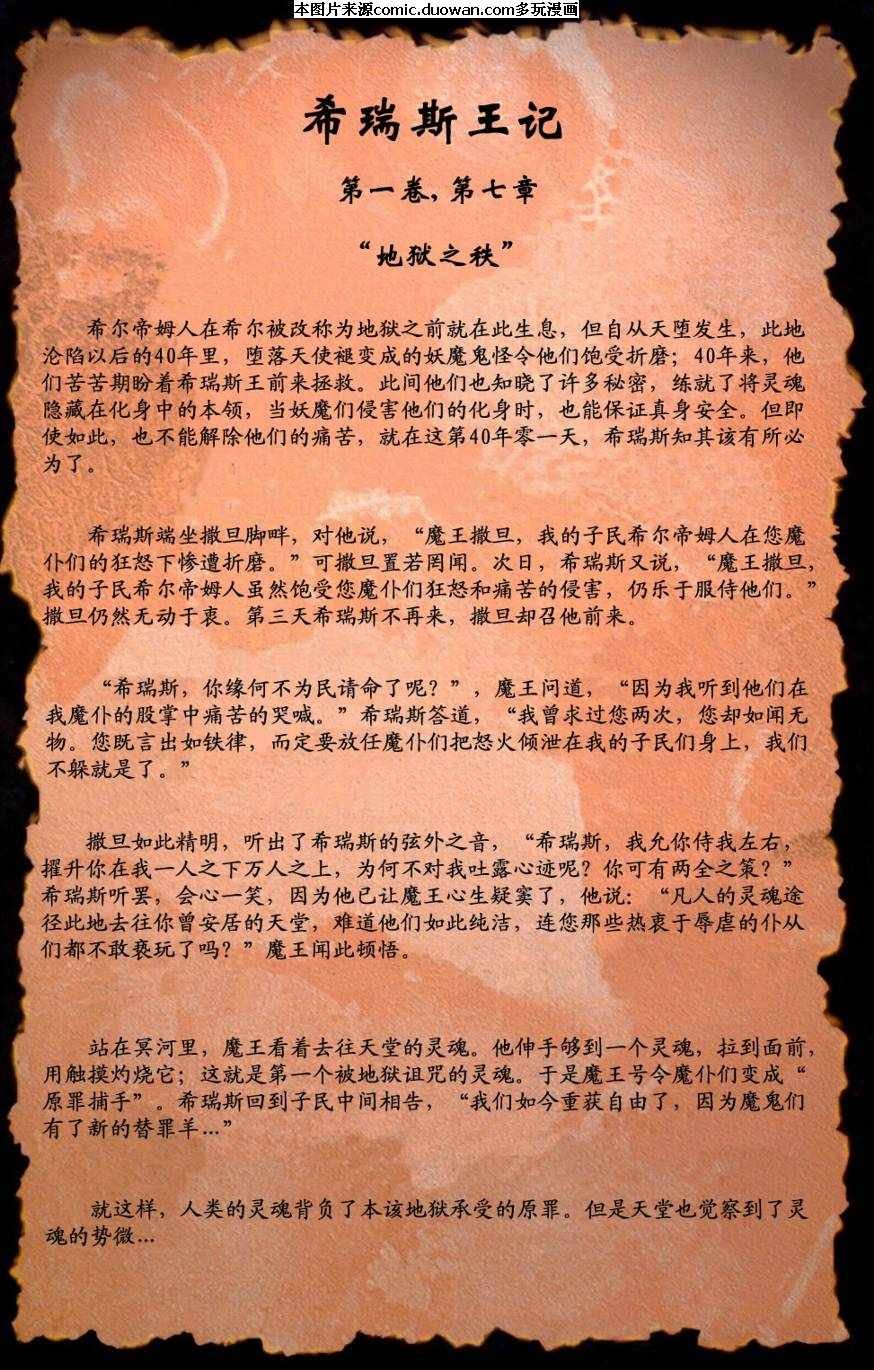 本图片来源comic.duowan.com多玩漫画
希瑞斯王记
第一卷，第七章
“地狱之秩”
希尔帝姆人在希尔被改称为地狱之前就在此生息，但自从天堕发生，此地
沦陷以后的40年里，堕落天使褪变成的妖魔鬼怪令他们饱受折磨；40年来，他
们苦苦期盼着希瑞斯王前来拯救。此间他们也知晓了许多秘密，练就了将灵魂
隐藏在化身中的本领，当妖魔们侵害他们的化身时，也能保证真身安全。但即
使如此，也不能解除他们的痛苦，就在这第40年零一天，希瑞斯知其该有所必
为了。
希瑞斯端坐撒旦脚畔，对他说，“魔王撒旦，我的子民希尔帝姆人在您魔
仆们的狂怒下惨遭折磨。”可撒旦置若罔闻。次日，希瑞斯又说，“魔王撒旦，
我的子民希尔帝姆人虽然饱受您魔仆们狂怒和痛苦的侵害，仍乐于服侍他们。”
撒旦仍然无动于衷。第三天希瑞斯不再来，撒旦却召他前来。
“希瑞斯，你缘何不为民请命了呢？”，魔王问道，“因为我听到他们在
我魔仆的股掌中痛苦的哭喊。”希瑞斯答道，“我曾求过您两次，您却如闻无
物。您既言出如铁律，而定要放任魔仆们把怒火倾泄在我的子民们身上，我们
不躲就是了。”
撒旦如此精明，听出了希瑞斯的弦外之音，“希瑞斯，我允你侍我左右，
擢升你在我一人之下万人之上，为何不对我吐露心迹呢？你可有两全之策？”
希瑞斯听罢，会心一笑，因为他已让魔王心生疑窦了，他说：“凡人的灵魂途
径此地去往你曾安居的天堂，难道他们如此纯洁，连您那些热衷于辱虐的仆从
们都不敢亵玩了吗？”魔王闻此顿悟。
站在冥河里，魔王看着去往天堂的灵魂。他伸手够到一个灵魂，拉到面前，
用触摸灼烧它；这就是第一个被地狱诅咒的灵魂。于是魔王号令魔仆们变成“
原罪捕手”。希瑞斯回到子民中间相告，“我们如今重获自由了，因为魔鬼们
有了新的替罪羊…”
就这样，人类的灵魂背负了本该地狱承受的原罪。但是天堂也觉察到了灵
魂的势微…